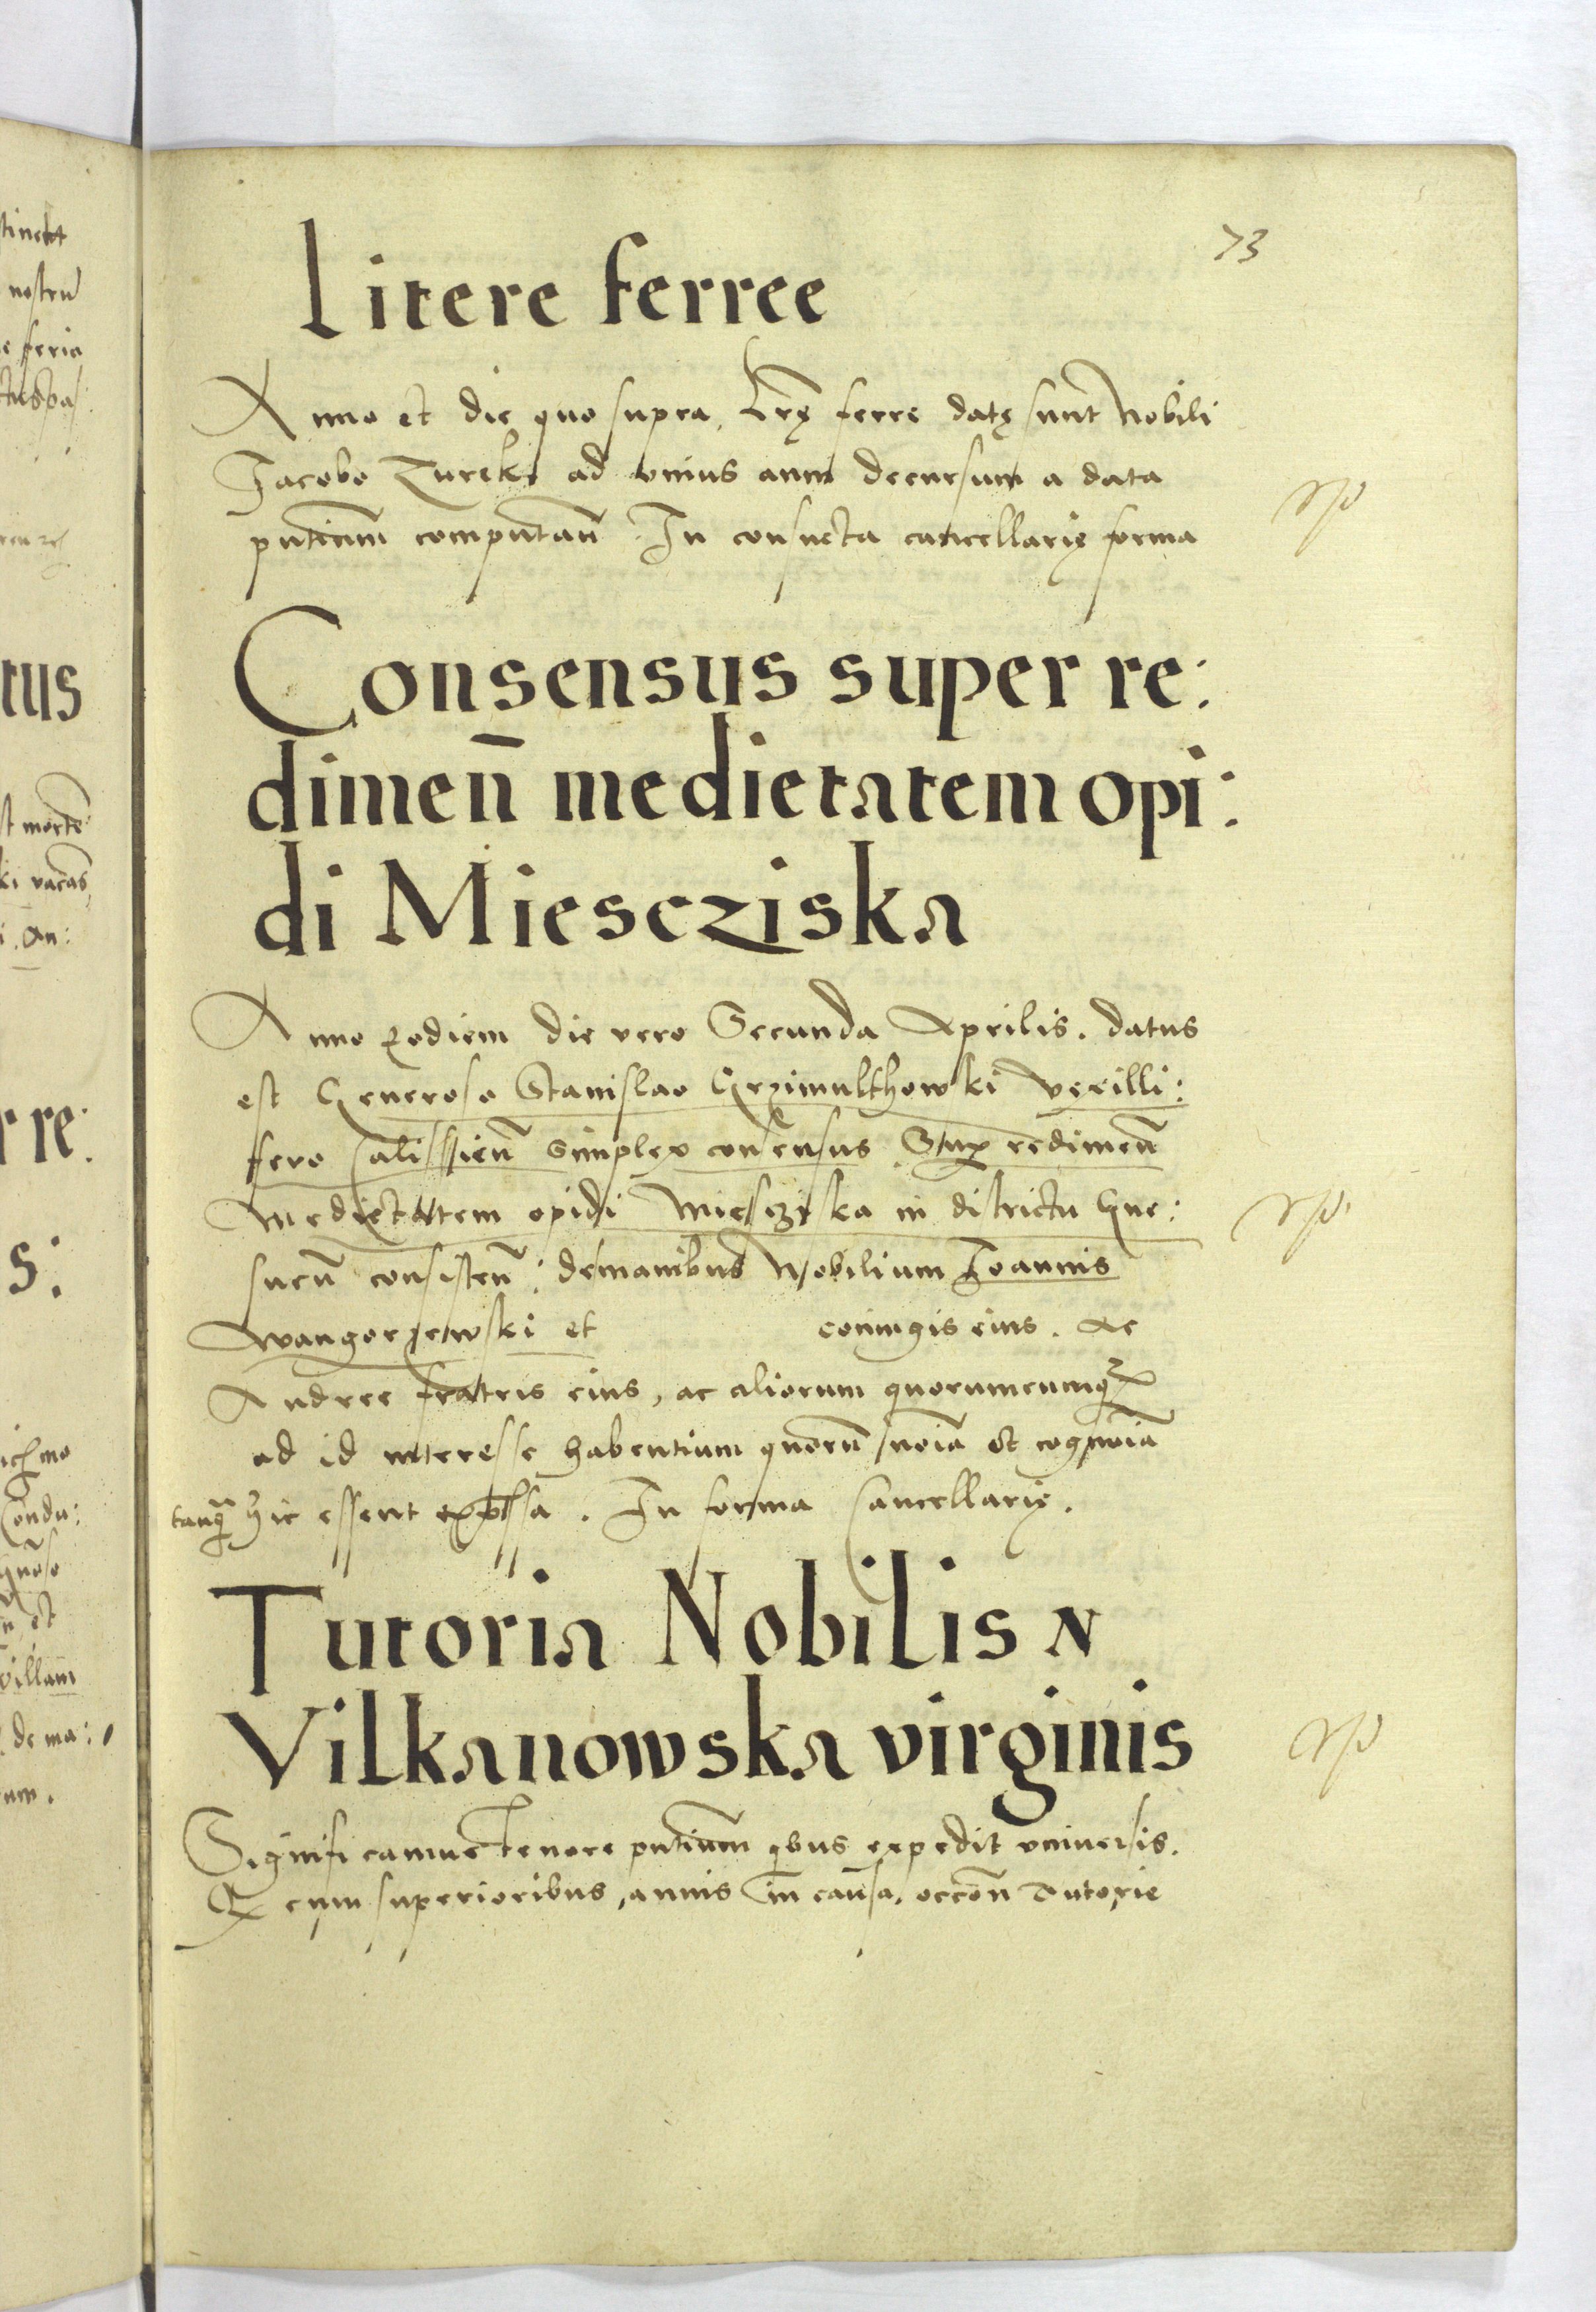 73
Litere ferree
Anno et die quo supra, Lrę ferre datę sunt Nobili
Jacobo Zurek ad vnius anni decursum a data
pntium computañ. In consueta cancellarię forma
Consensus super re:
dimeñ medietatem opi:
di Miescziska
Anno eodem die vero Secunda Aprilis. datus
est Generoso Stanislao Grzimulthowski vexilli:
fero Calissieñ simplex consensus Sup redimeñ
Medietatem opidi Miescziska in districtu Gne:
sneñ consisteñ: de manibus Nobilium Joannis
Wangorzewski et coniugis eius. Ac
Andree fratris eius, ac aliorum quorumcumq
ad id interesse habentium quorũ noĩa et cognoĩa
tanq̃ hic essent expssa. In forma Cancellarię.
Tutoria Nobilis N
Vilkanowska virginis
Significamus tenore pntium qbus expedit vniuersis.
Q cum superioribus annis in causa, occoñ Tutorie
tinet
nostru
feria
tus
st morte
ki vacas
An:
r re:
s:
Condu:
et
villam
de ma: